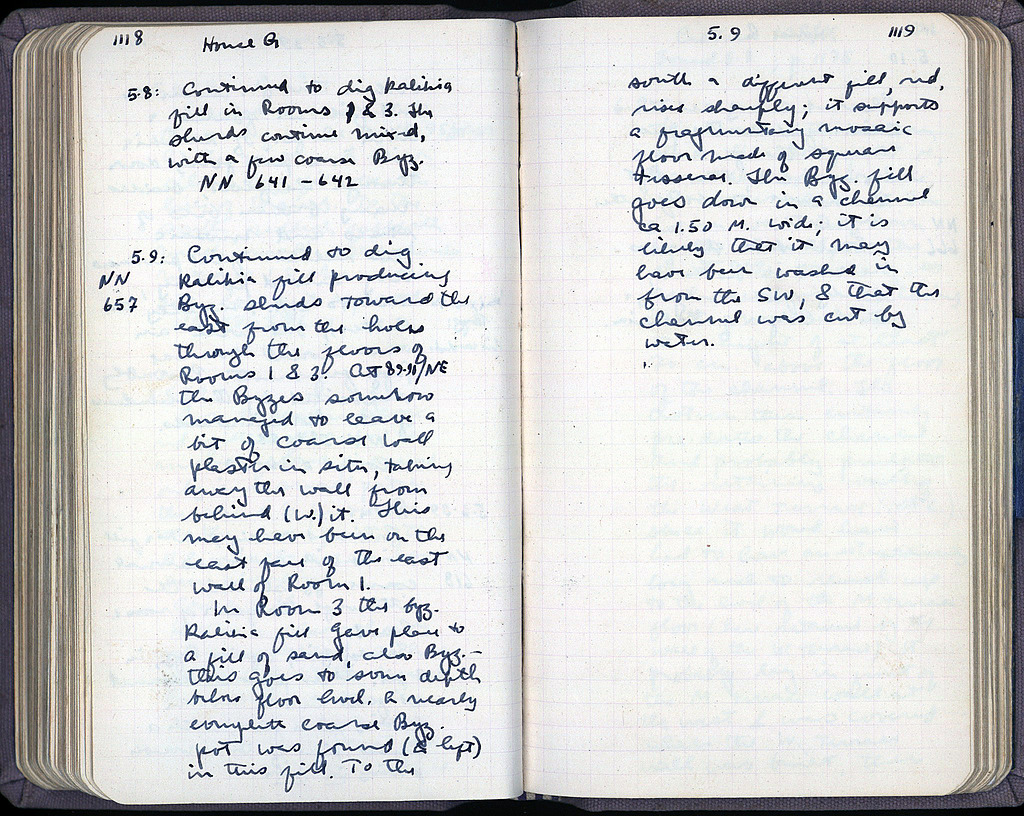 1118 House G
5.8: Continued to dig Kalikia
fill in Rooms 1 & 3. The
sherds continue mixed,
with a few coarse Byz.
NN 641 - 642
5.9: Continued to dig
NN Kalikia fill producing
657 Byz. sherds toward the
east from the holes
through the floors of
Rooms 1 & 3. At 89-91/NE
the Byzes somehow
managed to leave a
bit of coarse wall
plaster in situ, taking
away the wall from
behind (W.) it. This
may have been on the
east face of the east
wall of Room 1.
In Room 3 the byz.
Kalikia fill gave place to
a fill of sand, also Byz. -
this goes to some depth
below floor level. A nearly
complete coarse Byz.
pot was found (& left)
in this fill. To the
5.9 1119
south a different fill, red,
rises sharply; it supports
a fragmentary mosaic
floor made of square
tesserae. The Byz. fill
goes down in a channel
ca 1.50 M. wide; it is
likely that it may
have been washed in
from the SW, & that the
channel was cut by
water.